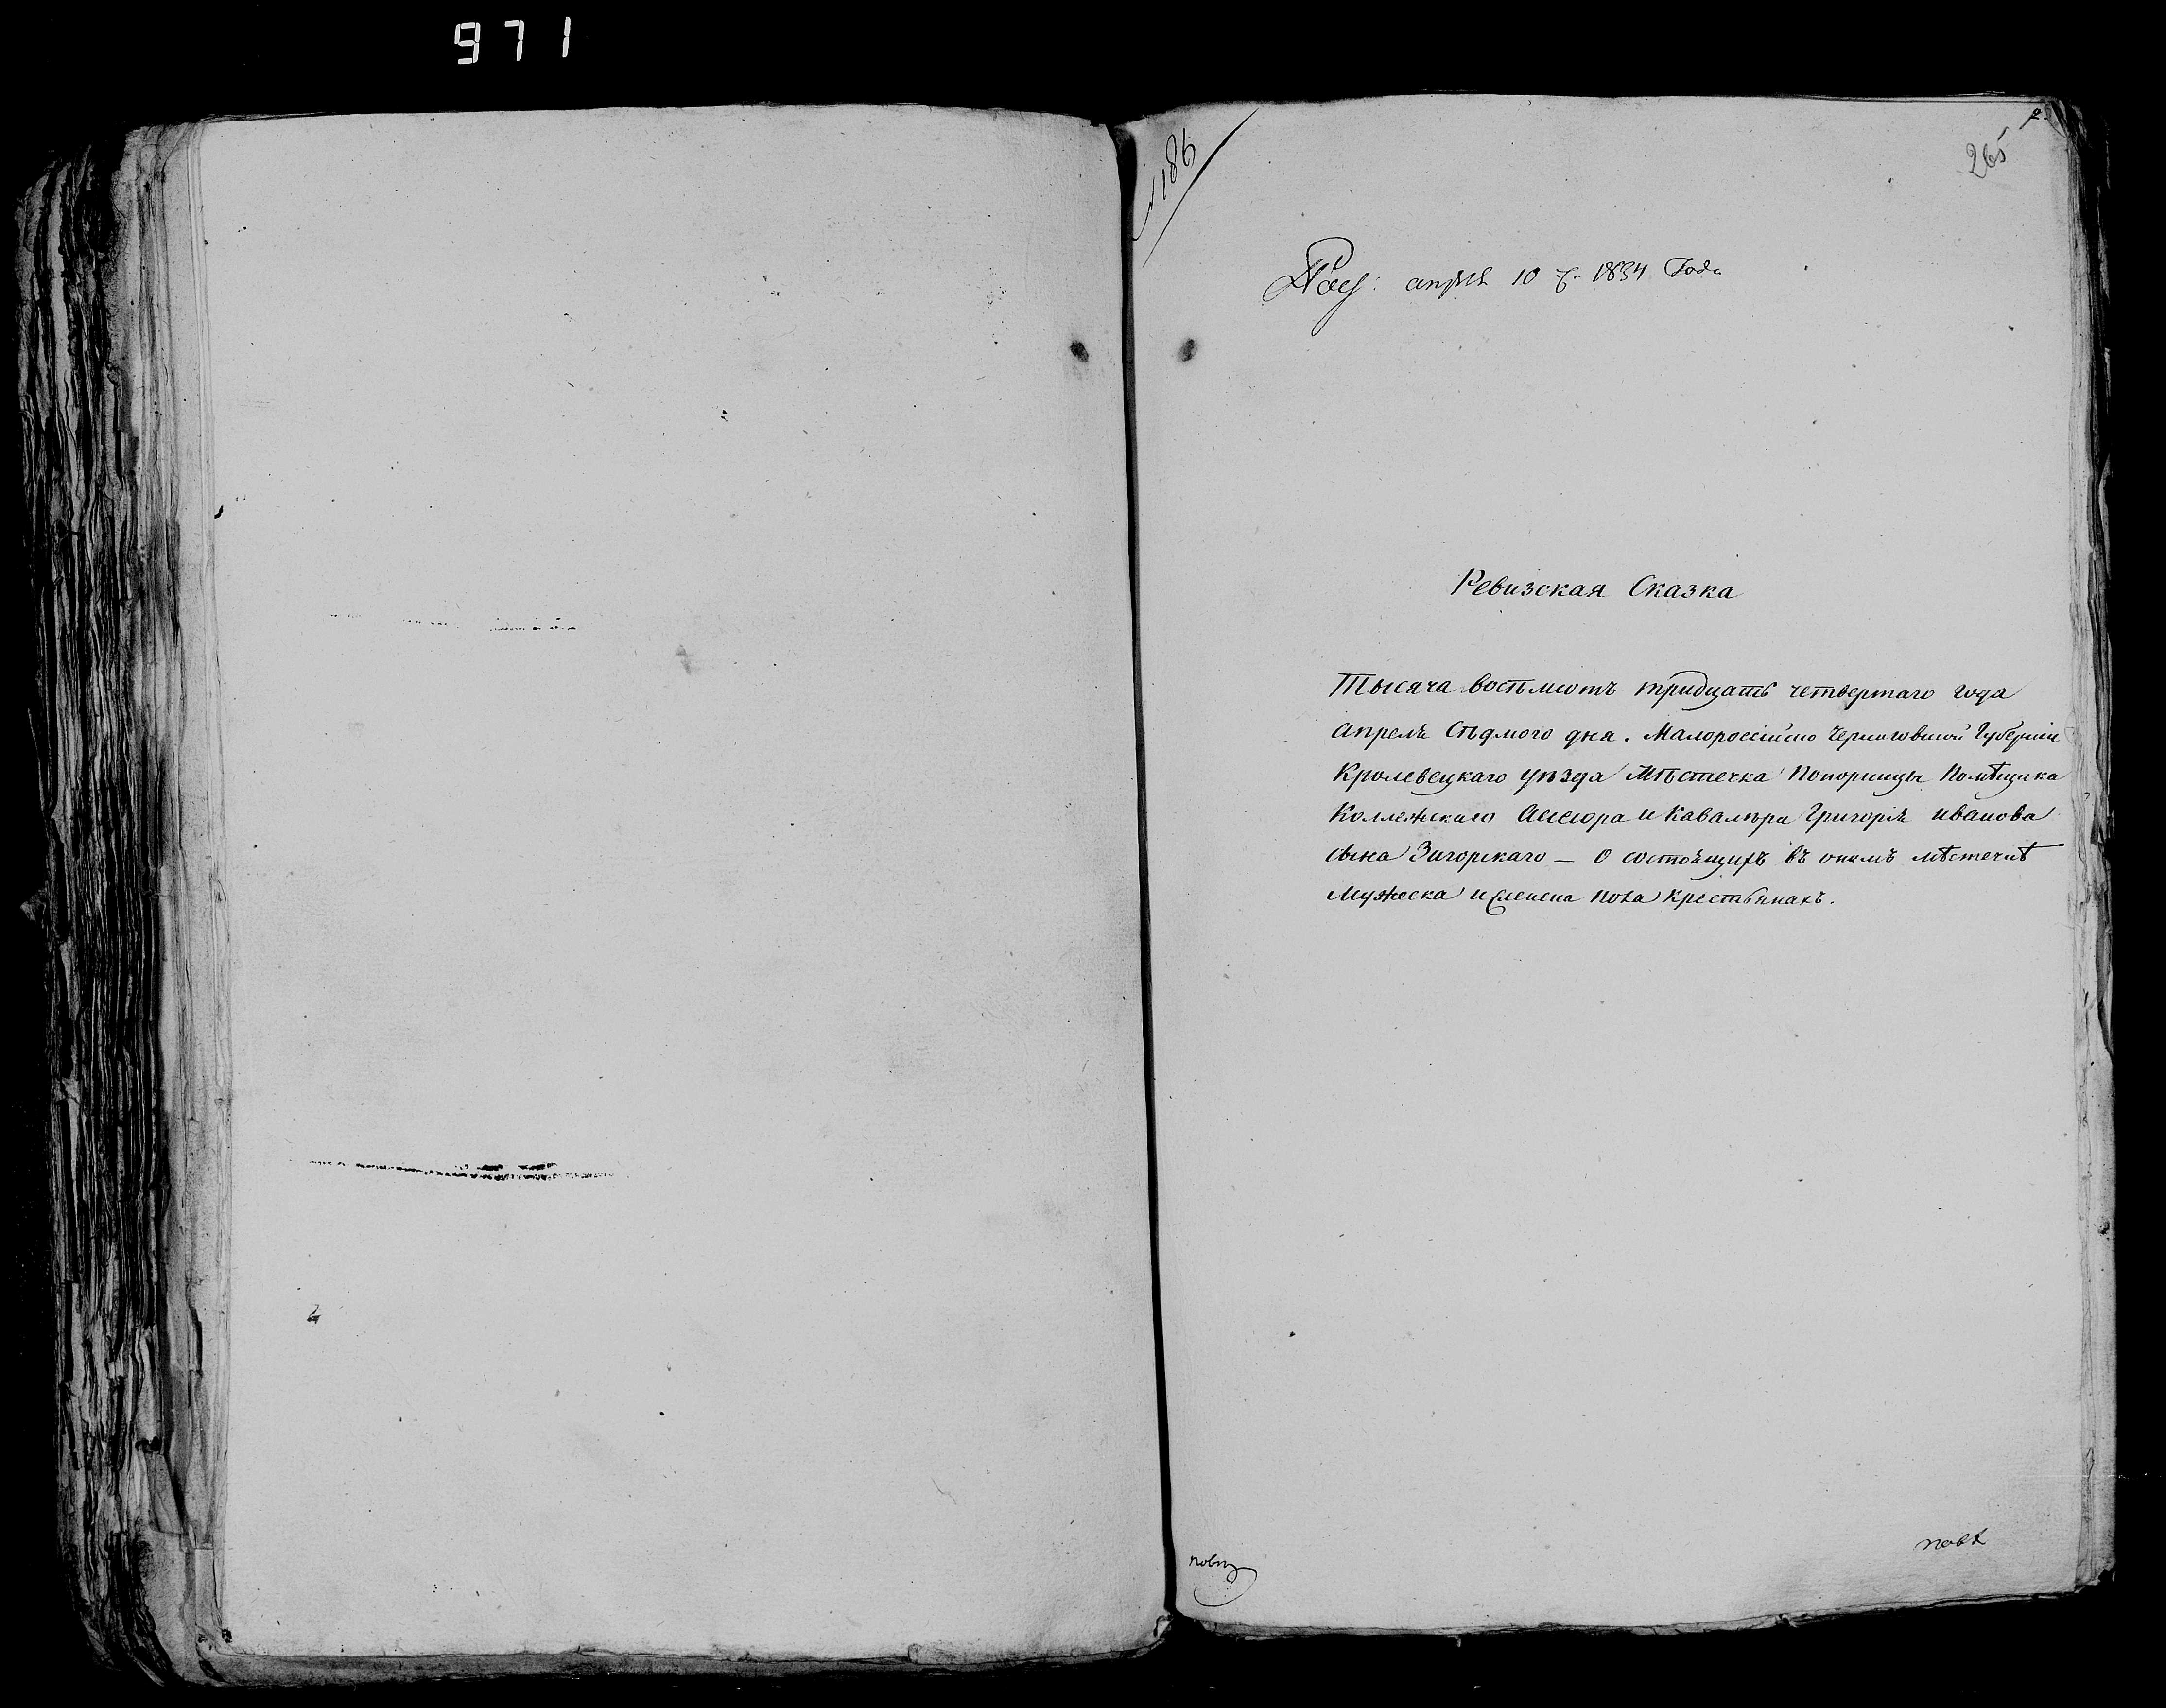 971
№ 186
265
апрѣля 10 ч. 1834 Года
Ревизская Сказка
Тысяча восѣмсотъ тридцать четвертаго года
апреля Сѣдмого дня. Малороссійско Черниговской Губерніи
Кролевецкаго уѣзда Мѣстечка Понорницы Помѣщика
Коллежскаго Ассесора и Кавалѣра Григорія иванова
сына Загорскаго — О состоящихъ въ ономъ мѣстечкѣ
Мужеска и женска пола крестьянахъ.